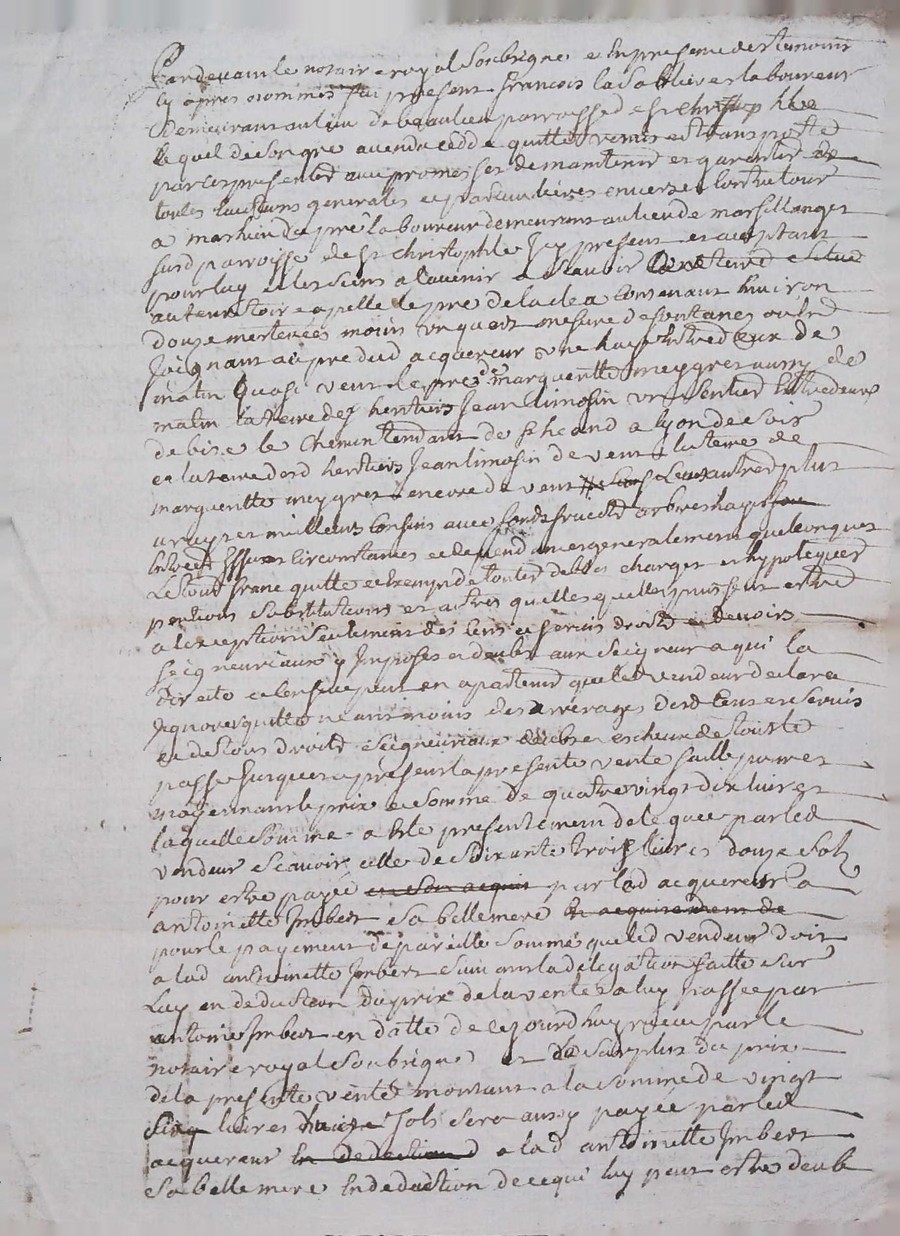 Pardevant le notaire royal Soubsigne et en presence des temoins
cy apres nommes fut present françois la Sabliere laboureur
demeurant au lieu de beaulieu parroisse de st christophle
lequel de son gre a vendu cedde quitte remis et transporte
par ces presentes avec promesses de maintenir et garantir de
toutes evictions generalles et particulieres envers et contre tous
a mathieu dupré laboureur demeurant au lieu de marsillanges
susd parroisse de st christophle icy present et acceptant
pour luy et les siens a l'avenir a Scavoir terre Situé
au territoire apelle le pre de la contenant Environ
douze meterées moins un quart mesure de fontanes ou
Joignant au pre dud acquereur une haye Entredeux de
matin quasi vent le pre de margueritte meygret aussy de
matin la terre des heritiers Jean limosin un Sentier Entredeux
de bize le Chemin tendant de st heand a lyon de soir
et la terre desd heritiers Jean limosin de vent la terre de
margueritte meygret encore de vent Sauf Leurs autres plus
vrays et meilleurs Confins avec fonds fruicts arbres hayes
Entrées Issues circonstances et dependances generalement quelconques
Le tout franc quitte et Exempt de toutes debtes charges et hypoteques
pentions Substitutions et autres quelles quelles puissent estre
a lexception Seulement des Cens et servis droits et devoirs
Seigneuriaux y Imposes et deubs aux Seigneur a qui la
directe et Censive peut en apartenir que led vendeur declare
Ignorer quitte neanmoins des arrerages desd Cens et Servis
et de tous droits Seigneuriaux deubs et escheus de tout le
passe jusques a present la presente vente faitte
moyennant le prix et Somme de quatre vingt dix livres
laquelle Somme a este presentement deleguee par led
vendeur Scavoir celle de Soixante trois livres douze Solz
pour estre payée en son acquit par lad acquereur a
antoinette Imbert Sa belle mere en acquittement de
pour le payement de pareille Somme que led vendeur doit
a lad antoinette Imbert Suivant la delegation faitte Sur
Luy en deduction du prix de la vente a luy passée par
antoine Imbert en datte de ce jourdhuy receue par le
notaire royal Soubsigne et le Surplus du prix
de la presente vente montant a la Somme de vingt
Six livres huict Sols Sera aussy payée par led
acquereur En deduction a lad antoinette Imbert
Sa belle mere En deduction de ce qui luy peut estre deub